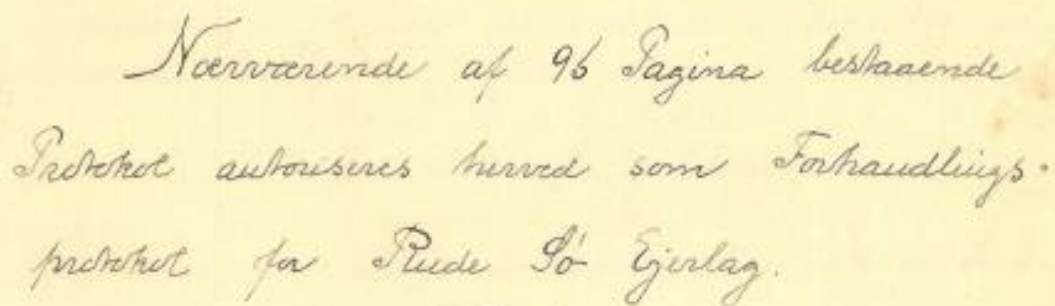 Nærværende af 96 Pagina bestaaende
Protokol autoriseres herved som Forhandlings-
protokol for Rude Sø Ejerlag.